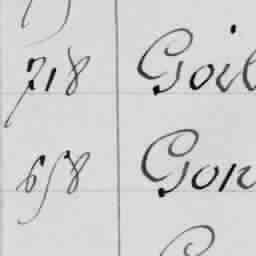 718 Goil
658 Gon